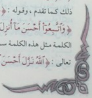 ذلك كما تقدم ، وقوله : ﴿
﴿ وَاتَّبِعُوا أَحْسَنَ مَا أُنزِلَ
الكلمة مثل هذه الكلمة سـ
تعالى : ﴿ اللَّهُ نَزَّلَ أَحْسَنَ